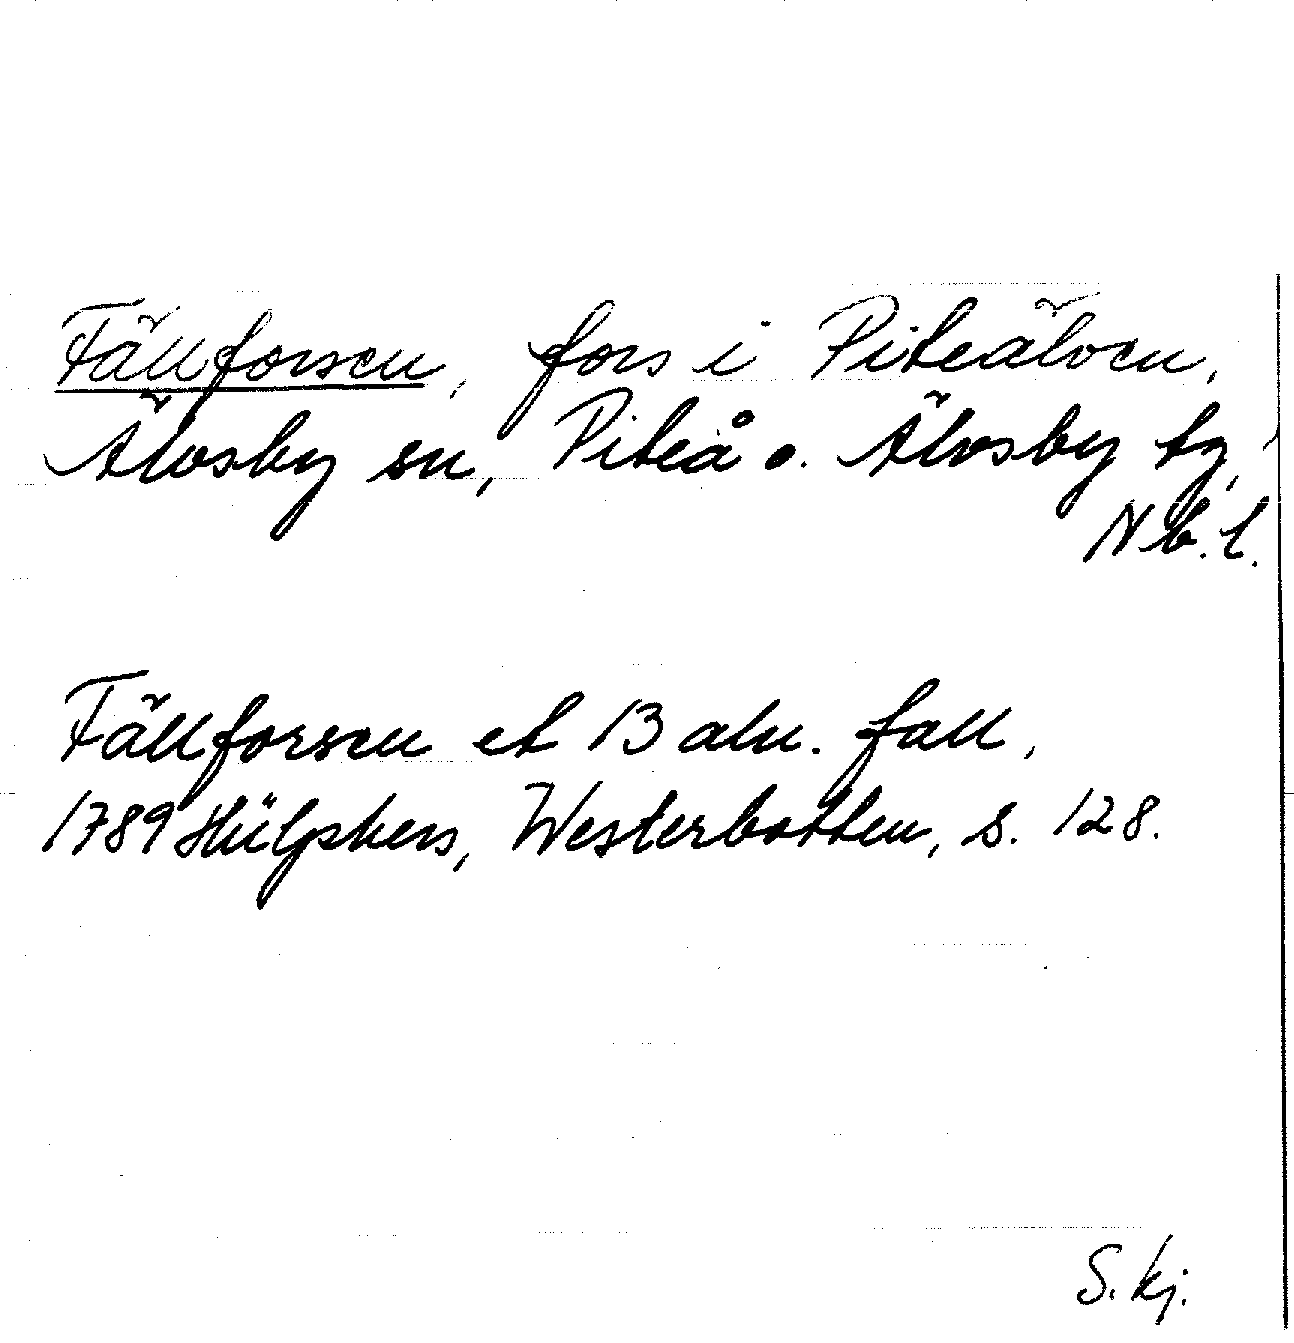 Fällforsen, fors i Piteälven,
Älvsby sn, Piteå o. Älvsby tg,
Nb. l.
Fällforsen et 13 aln. fall,
1789 Hülphers, Westerbotten, s. 128.
S. kj.